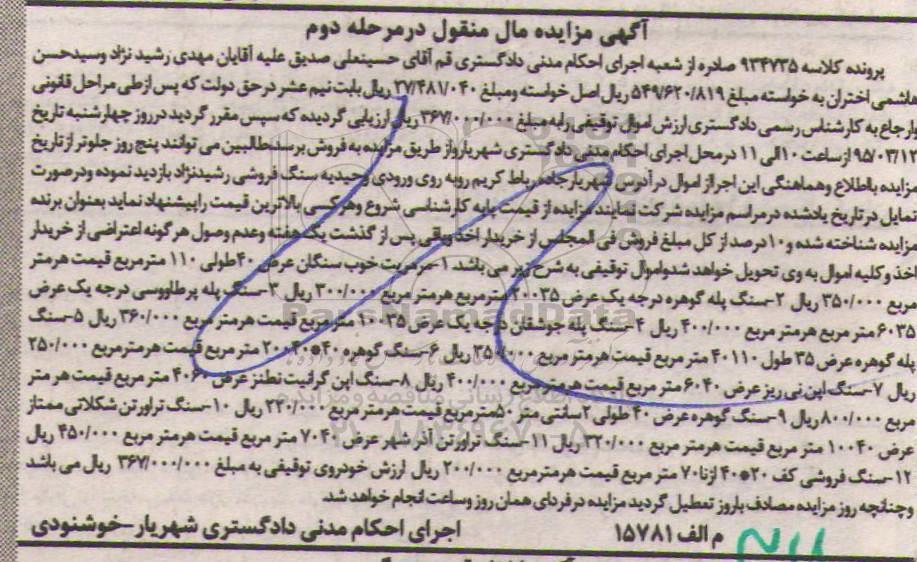 آگهی مزایده مال منقول در مرحله دوم
پرونده کلاسه ۹۳۴۷۳۵ صادره از شعبه اجرای احکام مدنی دادگستری قم آقای حسینعلی صدیق علیه آقایان مهدی رشید نژاد وسیدحسن
هاشمی اختران به خواسته مبلغ ۵۴۹/۶۲۰/۸۱۹ ریال اصل خواسته ومبلغ ۲۷/۴۸۱/۰۴۰ ریال بابت نیم عشر در حق دولت که پس ازطی مراحل قانونی
ارجاع به کارشناس رسمی دادگستری ارزش اموال توقیفی رابه مبلغ ۳۶۷/۰۰۰/۰۰۰ ریال ارزیابی گردیده که سپس مقرر گردید درروز چهارشنبه تاریخ
۹۵/۰۳/۱۲ ازساعت ۱۰الی ۱۱ درمحل اجرای احکام مدنی دادگستری شهریاراز طریق مزایده به فروش برسدطالبین می توانند پنج روز جلوتر از تاریخ
مزایده بااطلاع وهماهنگی این اجرا از اموال در آدرس شهریارجاده رباط کریم روبه روی ورودی وحیدیه سنگ فروشی رشیدنژاد بازدید نموده ودرصورت
تمایل در تاریخ یادشده درمراسم مزایده شرکت نمایند مزایده از قیمت پایه کارشناسی شروع وهرکسی بالاترین قیمت راپیشنهاد نماید بعنوان برنده
مزایده شناخته شده و۱۰درصد از کل مبلغ فروش فی المجلس از خریدار اخذ وباقی پس از گذشت یک هفته وعدم وصول هرگونه اعتراضی از خریدار
اخذ وکلیه اموال به وی تحویل خواهد شدواموال توقیفی به شرح زیر می باشد ۱-مرمریت خوب سنگان عرض ۴۰طولی ۱۱۰ مترمربع قیمت هرمتر
مربع ۳۵۰/۰۰۰ ریال ۲-سنگ پله گوهره درجه یک عرض ۲۰۰۳۵مترمربع هرمتر مربع ۳۰۰/۰۰۰ ریال ۳-سنگ پله پرطاووسی درجه یک عرض
۶۰۳۵ متر مربع هرمتر مربع ۴۰۰/۰۰۰ ریال ۴-سنگ پله جوشقان درجه یک عرض ۱۰۰۳۵ متر مربع قیمت هرمتر مربع ۳۶۰/۰۰۰ ریال ۵-سنگ
پله گوهره عرض ۳۵ طول ۴۰۱۱۰ متر مربع قیمت هرمتر مربع ۳۵۰/۰۰۰ ریال ۶-سنگ گوهره ۴۰*۲۰۰۴۰ متر مربع قیمت هرمترمربع ۲۵۰/۰۰۰
ریال ۷-سنگ اپن نی ریز عرض ۶۰۴۰متر مربع قیمت هرمترمربع ۴۰۰/۰۰۰ ریال ۸-سنگ اپن گرانیت نطنز عرض ۴۰۶۰ متر مربع قیمت هر متر
مربع ۸۰۰/۰۰۰ ریال ۹-سنگ گوهره عرض ۴۰ طولی ۲سانتی متر ۵۰مترمربع قیمت هرمتر مربع ۲۳۰/۰۰۰ ریال ۱۰-سنگ تراورتن شکلاتی ممتاز
عرض ۱۰۰۴۰ متر مربع قیمت هرمتر مربع ۳۲۰/۰۰۰ریال ۱۱-سنگ تراورتن آذر شهر عرض ۷۰۴۰ متر مربع قیمت هرمتر مربع ۴۵۰/۰۰۰ ریال
۱۲-سنگ فروشی کف ۲۰*۴۰ ازنا۷۰ متر مربع قیمت هرمترمربع ۲۰۰/۰۰۰ ریال ارزش خودروی توقیفی به مبلغ ۳۶۷/۰۰۰/۰۰۰ ریال می باشد
وچنانچه روز مزایده مصادف باروز تعطیل گردید مزایده در فردای همان روز وساعت انجام خواهد شد.
م الف ۱۵۷۸۱ اجرای احکام مدنی دادگستری شهریار-خوشنودی
ParsNamadData